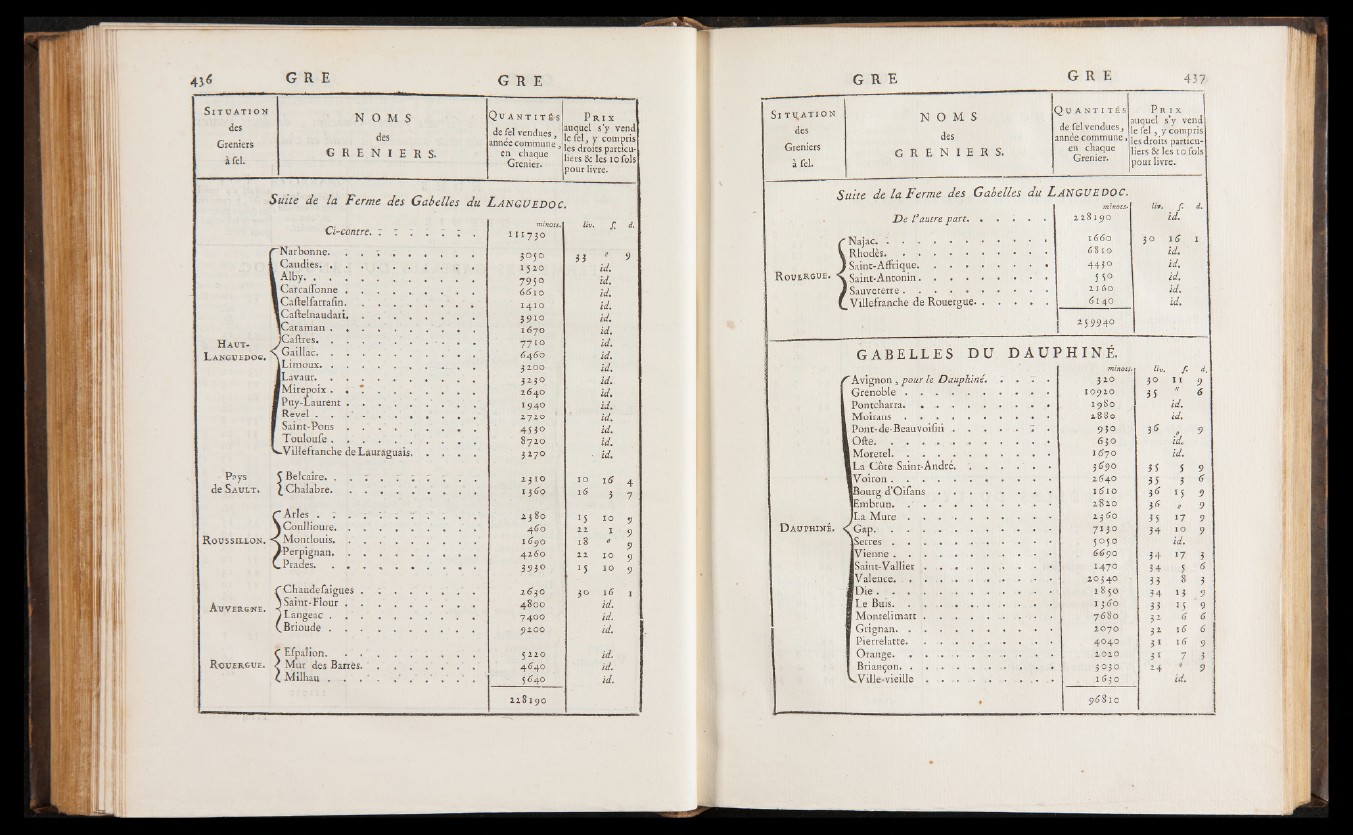 436 GRE GRE
SITUATION
des
Greniers
à sel.
NOMS
des
GRENIERS.
QUANTITÉS
de sel vendues,
année commune,
en chaque
Grenier.
PRIX
auquel s'y vend
le sel, y compris
les droits particu-
liers & les 10 sols
pour livre.
Suite de la Ferme des Gabelles du LANGUEDOC.
minots. liv. s. d.
Ci-contre. . . . . . . 111730
HAUT-LANGUEDOC.
Narbonne. . . . . . . 3050 33 " 9
Caudies. . . . . . . 1520 id.
Alby. . . . . . . 7950 id.
Carcassonne . . . . . . . 6610 id.
Castelsarrasin. . . . . . . 1410 id.
Castelnaudari. . . . . . . 3910 id.
Caraman . . . . . . . 1670 id.
Castres. . . . . . . 7710 id.
Gaillac. . . . . . . 6460 id.
Limoux. . . . . . . 3200 id.
Lavaur. . . . . . . 3230 id.
Mirepoix . . . . . . . 2640 id.
Puy-Laurent . . . . . . . 1940 id.
Revel . . . . . . . 2720 id.
Saint-Pons . . . . . . . 4530 id.
Toulouse . . . . . . . 8720 id.
Villefranche de Lauraguais. . . . . 3270 id.
Pays de SAULT.
Belcaire. . . . . . . 2310 10 16 4
Chalabre. . . . . . . 1360 16 3 7
ROUSSILLON.
Arles . . . . . . . 2380 15 10 9
Coullioure. . . . . . . 460 22 1 9
Montlouis. . . . . . . 1690 18 " 9
Perpignan. . . . . . . 4260 22 10 9
Prades. . . . . . . 3930 15 10 9
AUVERGNE.
Chaudesaigues . . . . . . . 2630 30 16 1
Saint-Flour . . . . . . . 4800 id.
Langeac . . . . . . . 7400 id.
Brioude . . . . . . . 9200 id.
ROUERGUE.
Espalion. . . . . . . 5220 id.
Mur des Barres. . . . . . . 4640 id.
Milhau . . . . . . . 5640 id.
228190
GRE GRE 437
SITUATION
des
Greniers
à sel.
NOMS
des
GRENIERS.
QUANTITÉS
de sel vendues,
année commune,
en chaque
Grenier.
PRIX
auquel s'y vend
le sel, y compris
les droits particu-
liers & les 10 sols
pour livre.
Suite de la Ferme des Gabelles du LANGUEDOC.
minots. liv. s. d.
De l'autre part. . . . . . 228190 id.
ROUERGUE.
Najac. . . . . . . 1660 30 16 1
Rhodès. . . . . . . 6810 id.
Saint-Affrique. . . . . . . 4430 id.
Saint-Antonin . . . . . . . 550 id.
Sauveterre . . . . . . . 2160 id.
Villefranche de Rouergue. . . . . . 6140 id.
259940
GABELLES DU DAUPHINÉ.
minots. liv. s. d.
DAUPHINÉ.
Avignon, pour le Dauphiné. . . . . 320 30 11 9
Grenoble . . . . . . . 10920 35 " 6
Pontcharra. . . . . . . 1980 id.
Moirans . . . . . . . 2880 id.
Pont-de-Beauvoisin . . . . . . . 930 36 " 9
Oste. . . . . . . 630 id.
Moretel. . . . . . . 1670 id.
La Côte Saint-André. . . . . . 3690 35 5 9
Voiron . . . . . . . 2640 35 3 6
Bourg d'Oisans . . . . . . . 1610 36 15 9
Embrun. . . . . . . 2820 36 " 9
La Mure . . . . . . . 2360 35 17 9
Gap. . . . . . . 7130 34 10 9
Serres . . . . . . . 5050 id.
Vienne . . . . . . . 6690 34 17 3
Saint-Vallier . . . . . . . 1470 34 5 6
Valence. . . . . . . 20340 33 8 3
Die . . . . . . . 1850 34 13 9
Le Buis. . . . . . . 1360 33 15 9
Montelimart . . . . . . . 7680 32 6 6
Grignan. . . . . . . 2070 32 16 6
Pierrelatte. . . . . . . 4040 31 16 9
Orange. . . . . . . 2020 31 7 3
Briançon. . . . . . . 3030 24 " 9
Ville-vieille . . . . . . . 1630 id.
96810